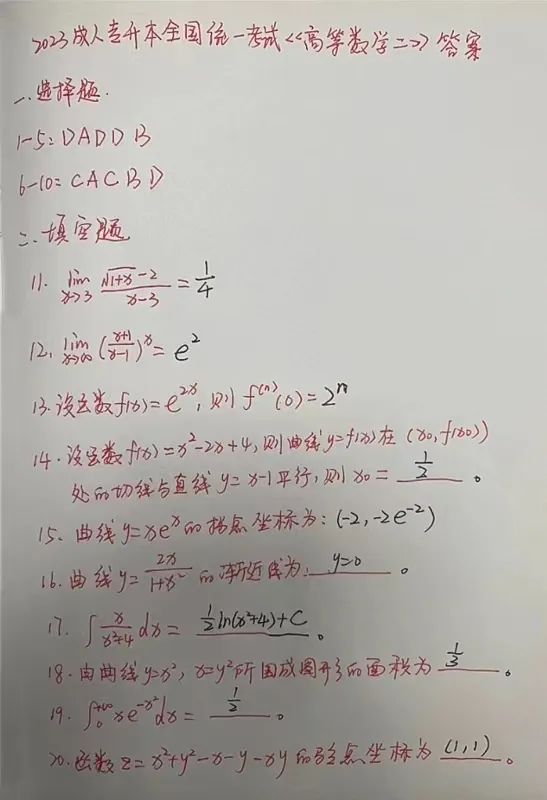 2023成人专升本全国统一考试《高等数学二》答案
一、选择题.
1-5: DADDB
6-10: CACBD
二、填空题
11. lim x→3 (√(1+x)-2)/(x-3) = 1/4
12. lim x→∞ ((x+1)/(x-1))^x = e^2
13. 设函数f(x)=e^(2x), 则 f^(n)(0)=2^n
14. 设函数f(x)=x²-2x+4, 则曲线y=f(x)在(x0,f(x0))
处的切线与直线y=x-1平行, 则x0= 1/2 。
15. 曲线y=xe^x的拐点坐标为: (-2, -2e^(-2))
16. 曲线y=2x/(1+x²) 的渐近线为: y=0 。
17. ∫ x/(x²+4) dx= 1/2 ln(x²+4)+C 。
18. 由曲线y=x², x=y²所围成图形的面积为 1/3 。
19. ∫₀^(+∞) xe^(-x²)dx= 1/2 。
20. 函数z=x²+y²-x-y-xy的驻点坐标为 (1,1) 。